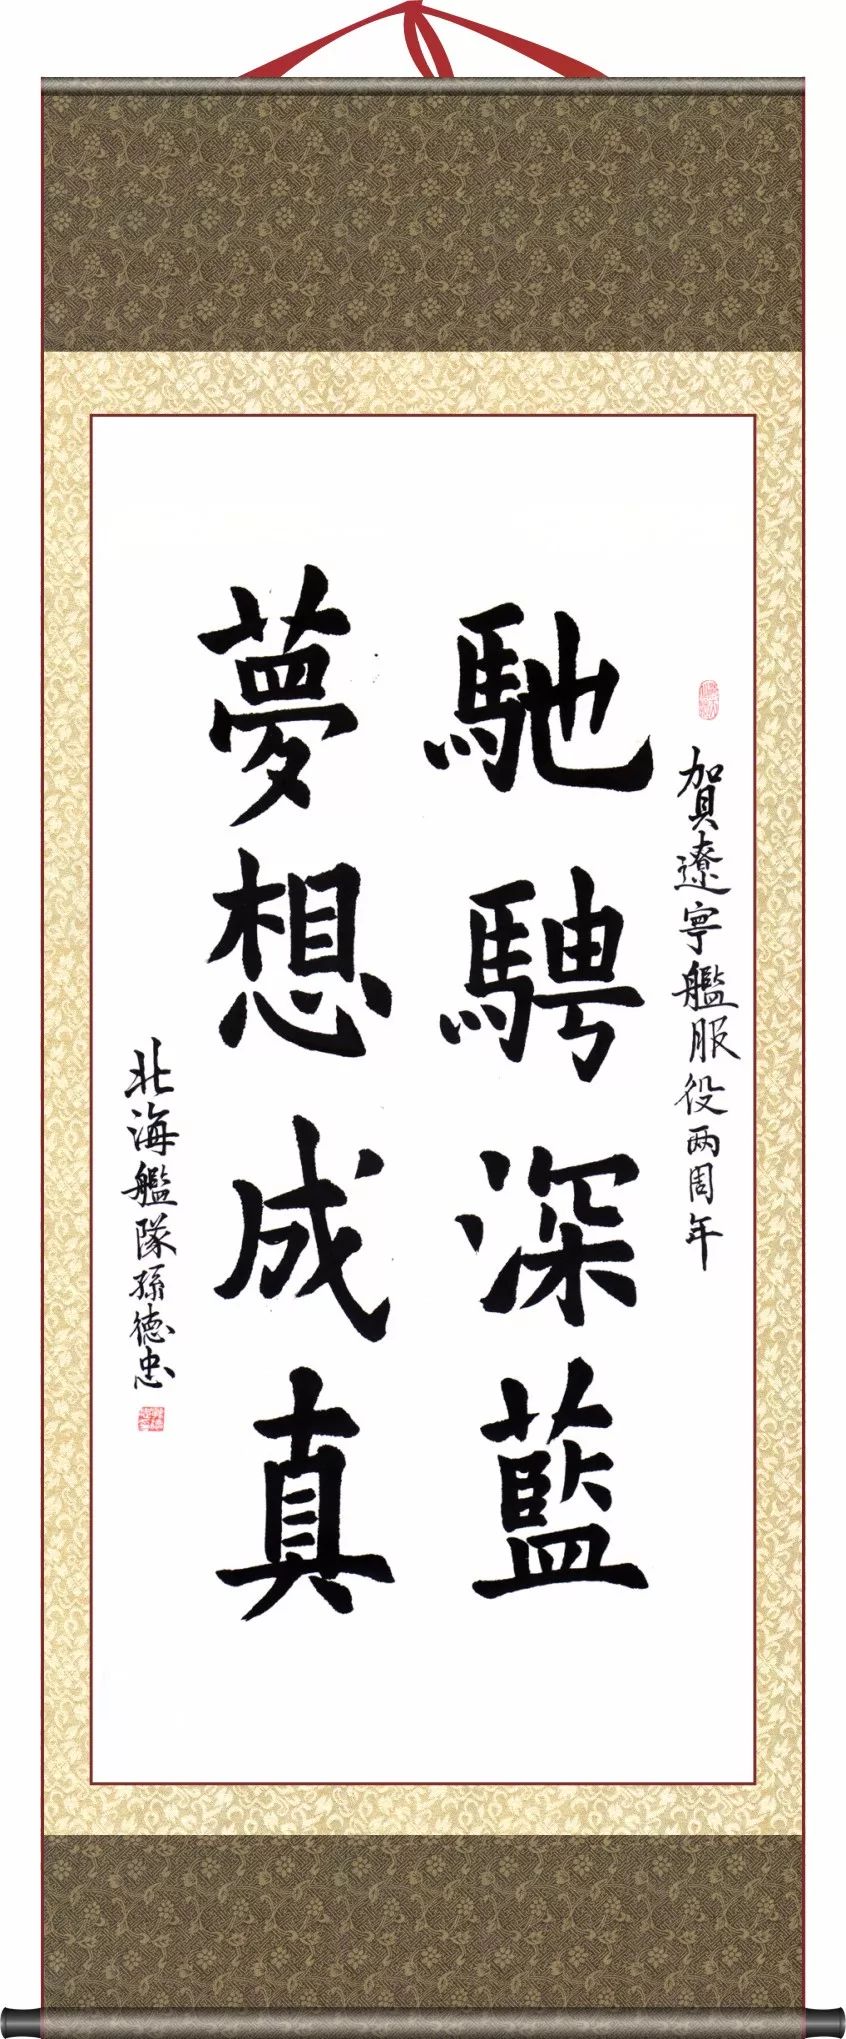 賀遼寧艦服役两周年
馳騁深藍
夢想成真
北海艦隊孫德忠